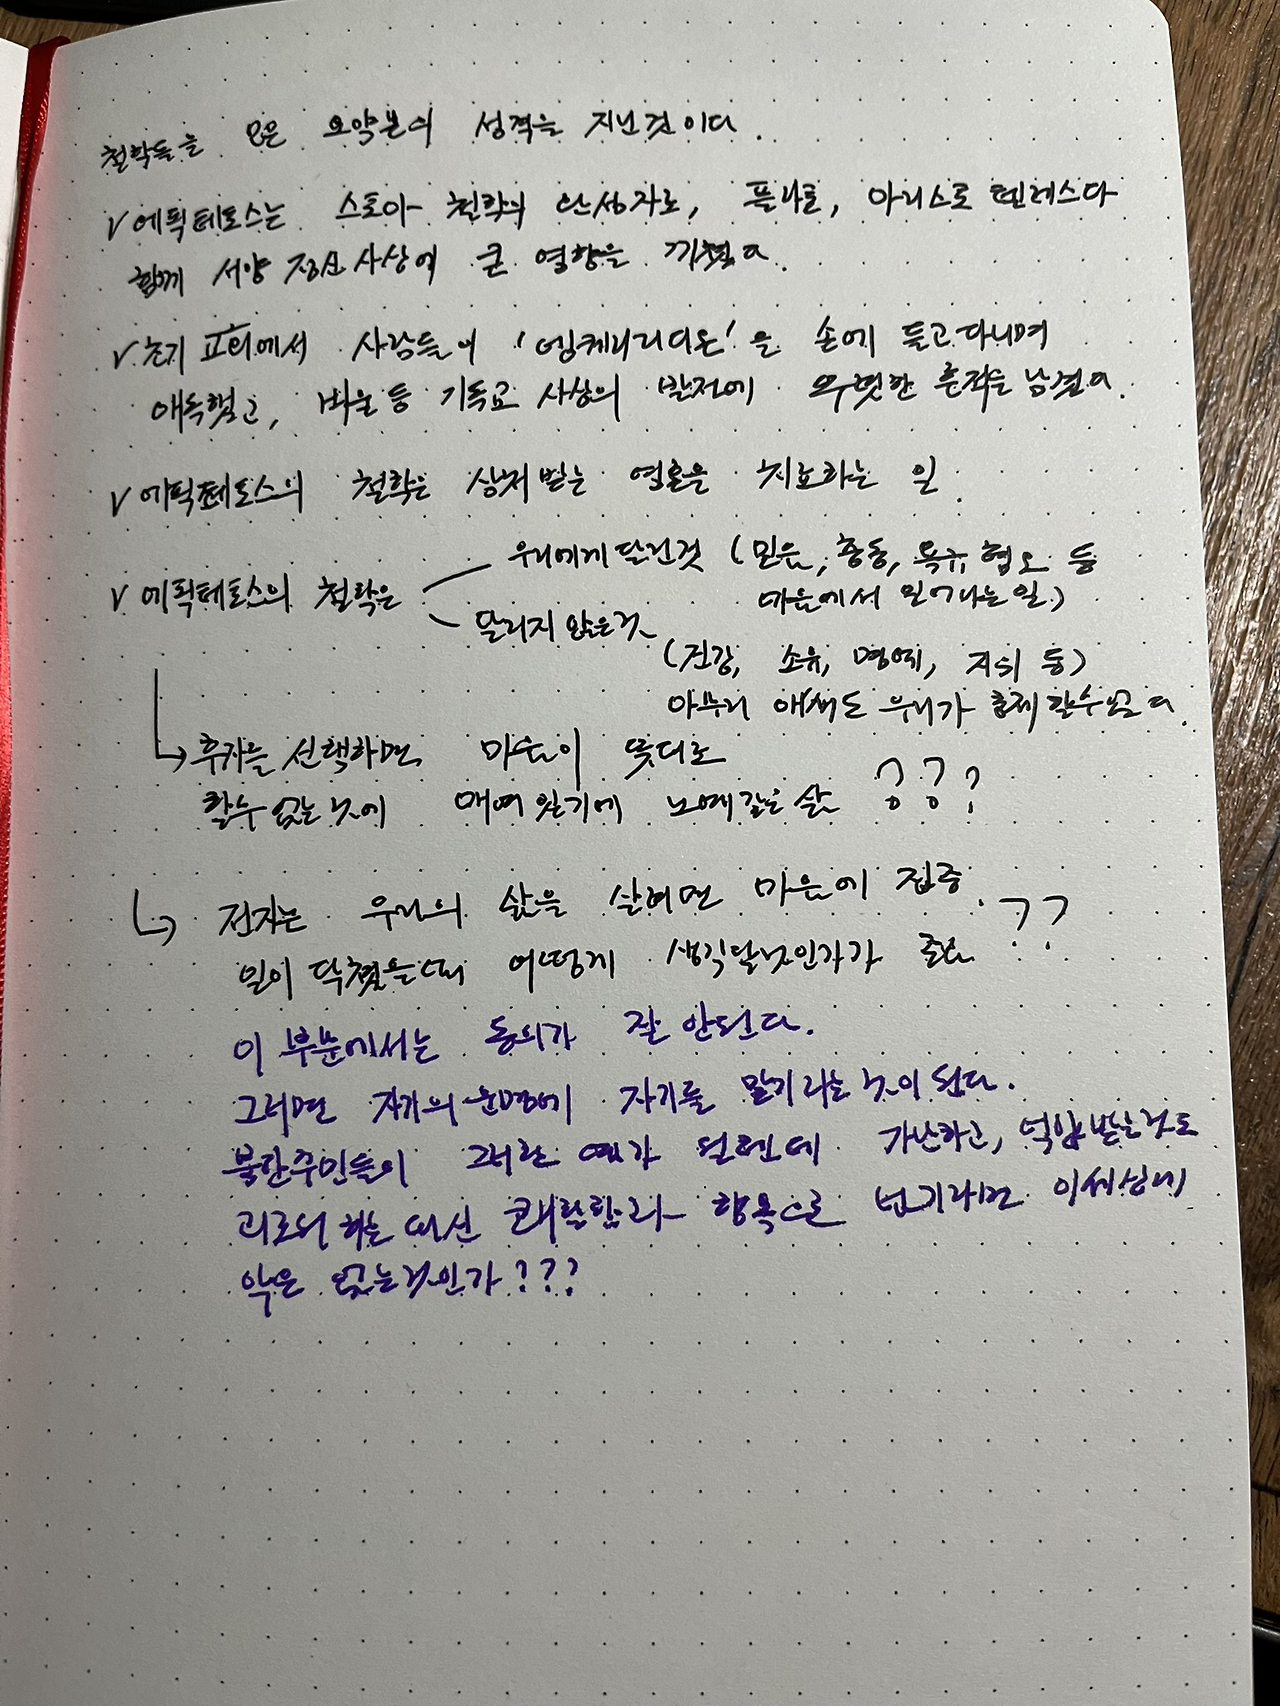 철학들을 모은 요약본의 성격을 지닌것이다.
√ 에픽테토스는 스토아 철학의 완성자로, 플라톤, 아리스토텔레스다
함께 서양 정신사상에 큰 영향을 끼쳤다.
√ 초기 교회에서 사람들이 '엥케이리디온'을 손에 들고 다니며
애독했고, 바울 등 기독교 사상의 발전에 뚜렷한 흔적을 남겼다.
√ 에픽테토스의 철학은 상처받는 영혼을 치료하는 일.
√ 에픽테토스의 철학은
우리에게 달린것 (믿음, 충동, 욕구, 혐오 등
마음에서 일어나는일.)
달리지 않은것
(건강, 소유, 명예, 지위 등)
아무리 애써도 우리가 통제 할수 없다.
↳ 후자를 선택하면 마음이 뜻대로
할수 없는 것에 매여 있기에 노예같은 삶 ???
↳ 전자는 우리의 삶을 살려면 마음에 집중
일이 닥쳤을 때 어떻게 생각할것인가가 중요 ??
이 부분에서는 동의가 잘 안된다.
그러면 자기의 운명에 자기를 맡기라는 것이 된다.
북한주민들이 그러한 예가 될텐데 가난하고, 억압 받는것도
괴로워 하는 대신 쾌락이라 행복으로 넘기라면 이세상에
악은 없는것인가???